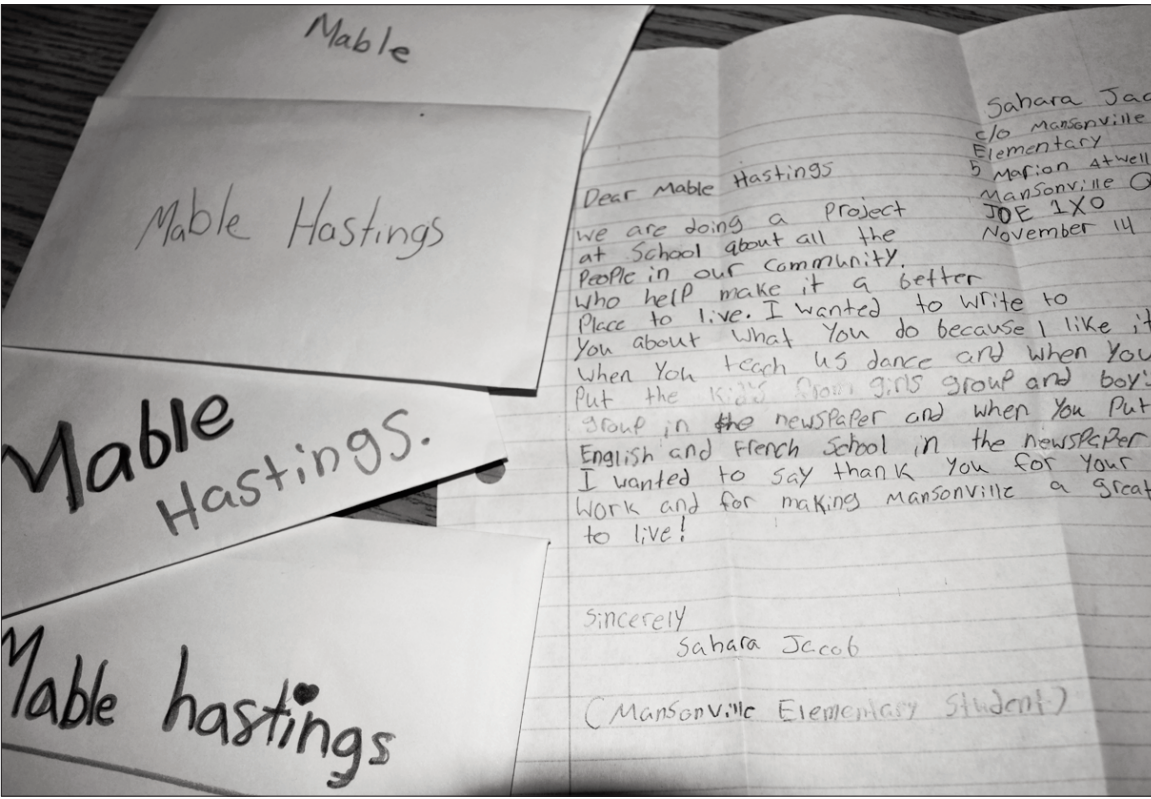 Mable
Mable Hastings
Mable
Hastings.
Mable hastings
Sahara Jac
c/o Mansonville
Elementary
5 Marion Atwell
Mansonville Q
J0E 1X0
November 14
Dear Mable Hastings
we are doing a Project
at School about all the
People in our Community.
who help make it a better
Place to live. I wanted to write to
You about what You do because I like it
when You teach us dance and when You
Put the kids from girls group and boy's
group in the newspaper and when You Put
English and French School in the newspaper
I wanted to say thank you for your
work and for making Mansonville a great
to live!
Sincerely
Sahara Jacob
(Mansonville Elementary Student)